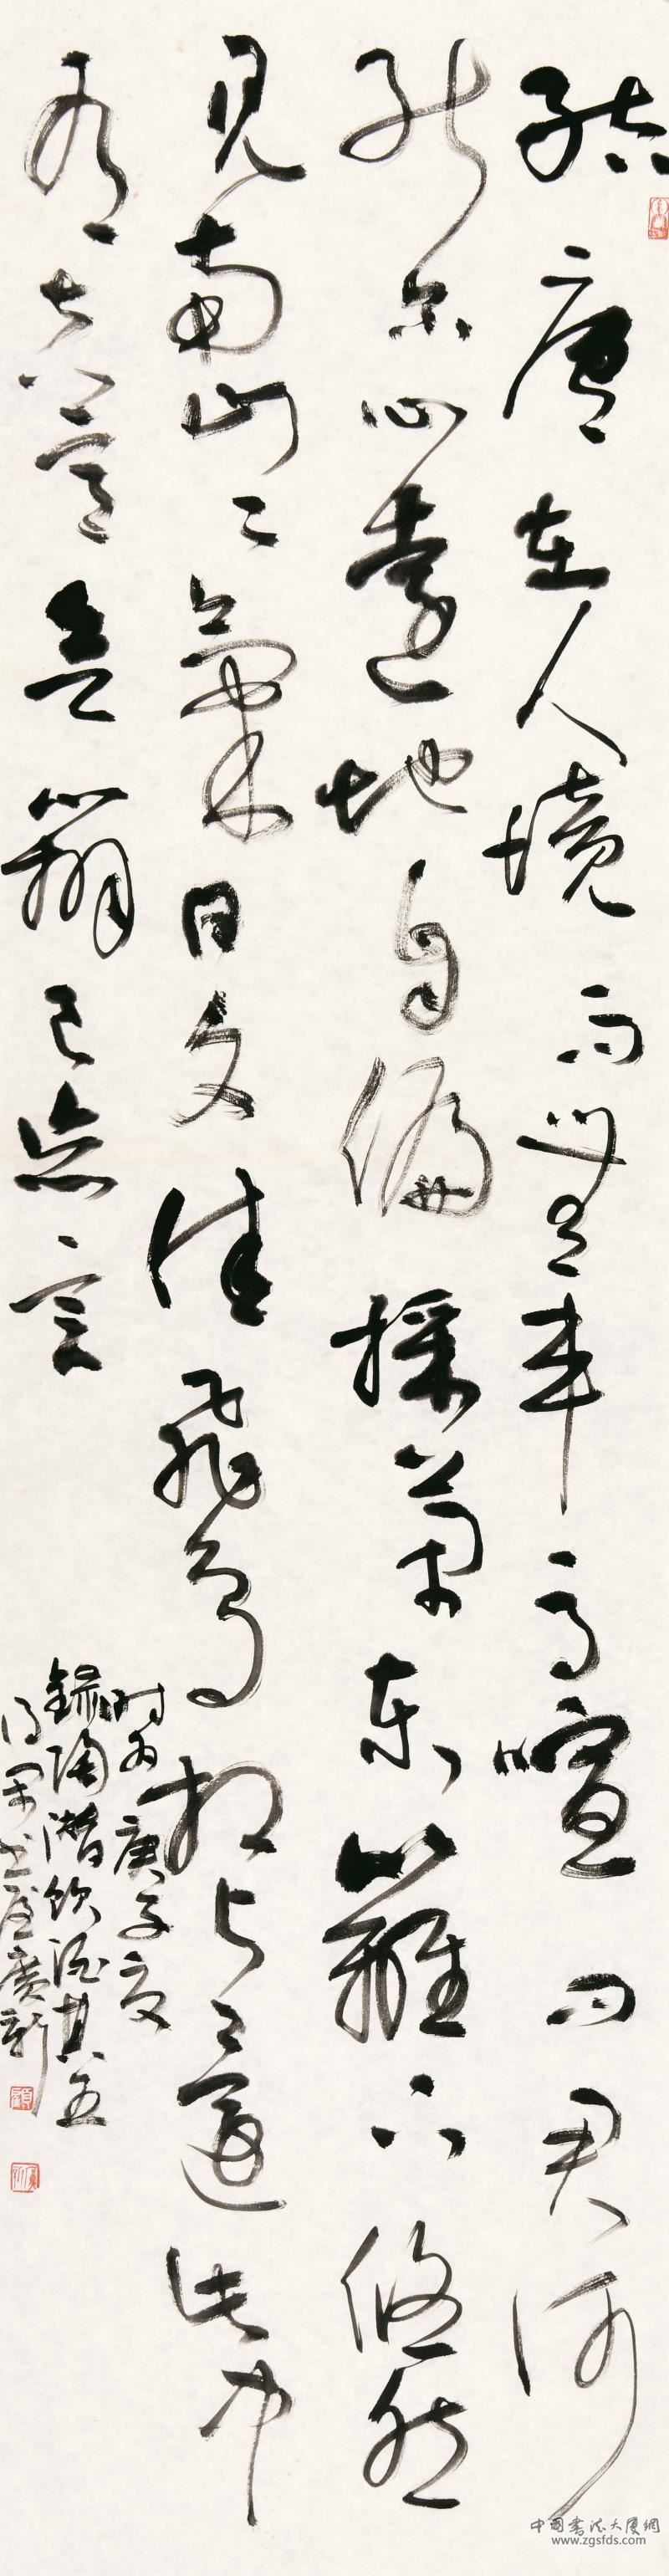 結廬在人境而無車馬喧问君何
能尔心遠地自偏採菊東籬下悠然
見南山〻氣日夕佳飛鳥相与還此中
有真意欲辯已忘言
时为庚子夏
録陶潜飲酒其五
書屋廣新
中国書法大厦網
www.zgsfds.com